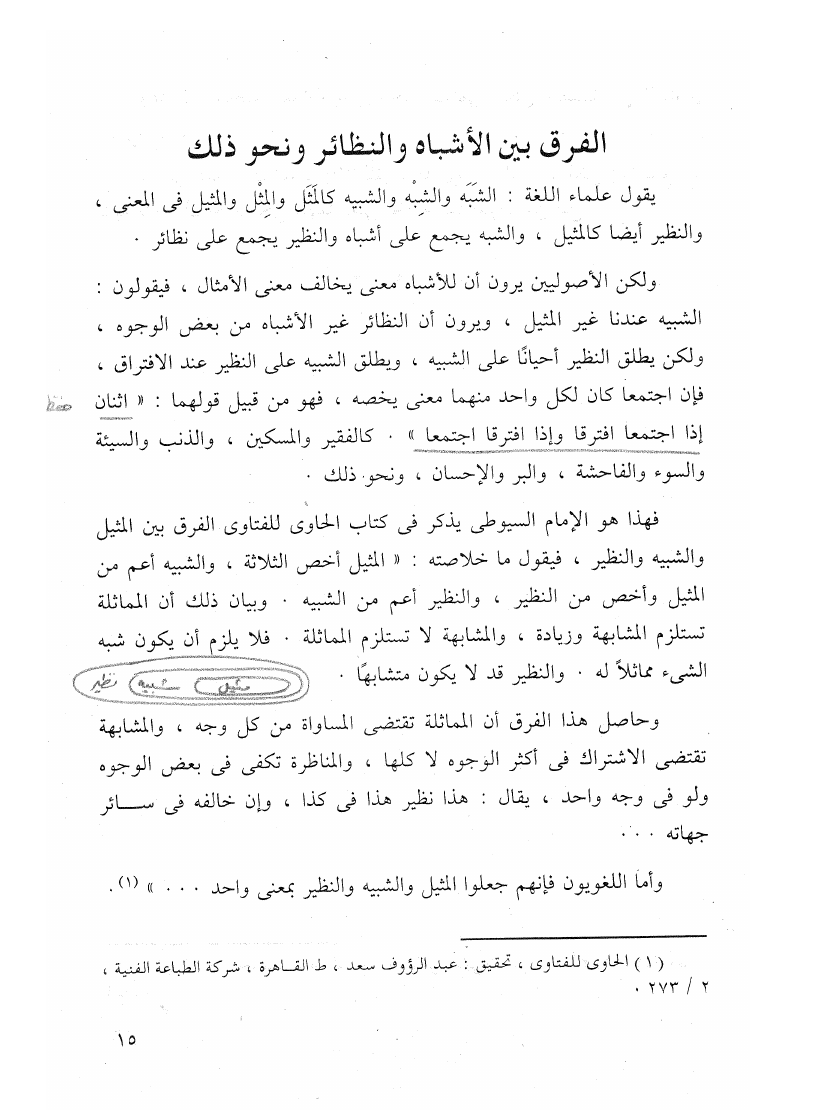 الفرق بين الأشباه والنظائر ونحو ذلك
يقول علماء اللغة : الشَبَه والشِبْه والشبيه كالمَثَل والمِثْل والمثيل فى المعنى ،
والنظير أيضا كالمثيل ، والشبه يجمع على أشباه والنظير يجمع على نظائر ٠
ولكن الأصوليين يرون أن للأشباه معنى يخالف معنى الأمثال ، فيقولون :
الشبيه عندنا غير المثيل ، ويرون أن النظائر غير الأشباه من بعض الوجوه ،
ولكن يطلق النظير أحيانًا على الشبيه ، ويطلق الشبيه على النظير عند الافتراق ،
فإن اجتمعا كان لكل واحد منهما معنى يخصه ، فهو من قبيل قولهما : « اثنان
إذا اجتمعا افترقا وإذا افترقا اجتمعا » ٠ كالفقير والمسكين ، والذنب والسيئة
والسوء والفاحشة ، والبر والإحسان ، ونحو ذلك ٠
فهذا هو الإمام السيوطى يذكر فى كتاب الحاوى للفتاوى الفرق بين المثيل
والشبيه والنظير ، فيقول ما خلاصته : « المثيل أخص الثلاثة ، والشبيه أعم من
المثيل وأخص من النظير ، والنظير أعم من الشبيه ٠ وبيان ذلك أن المماثلة
تستلزم المشابهة وزيادة ، والمشابهة لا تستلزم المماثلة ٠ فلا يلزم أن يكون شبه
الشىء مماثلاً له ٠ والنظير قد لا يكون متشابهًا ٠
مثيل شبيه نظير
وحاصل هذا الفرق أن المماثلة تقتضى المساواة من كل وجه ، والمشابهة
تقتضى الاشتراك فى أكثر الوجوه لا كلها ، والمناظرة تكفى فى بعض الوجوه
ولو فى وجه واحد ، يقال : هذا نظير هذا فى كذا ، وإن خالفه فى ســـائر
جهاته ٠ ٠ ٠
وأما اللغويون فإنهم جعلوا المثيل والشبيه والنظير بمعنى واحد ٠ ٠ ٠ » (١) ٠
(١) الحاوى للفتاوى ، تحقيق : عبد الرؤوف سعد ، ط القـاهرة ، شركة الطباعة الفنية ،
٢ / ٢٧٣ ٠
١٥